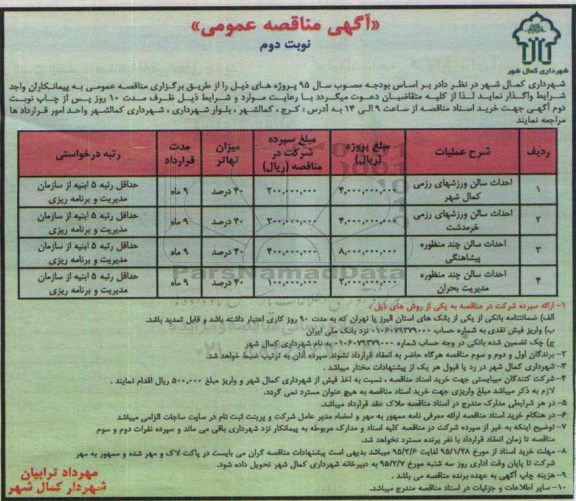 «آگهی مناقصه عمومی»
نوبت دوم
شهرداری کمال شهر
شهرداری کمال شهر در نظر دارد بر اساس بودجه مصوب سال ۹۵ پروژه های ذیل را از طریق برگزاری مناقصه عمومی به پیمانکاران واجد
شرایط واگذار نماید لذا از کلیه متقاضیان دعوت میگردد با رعایت موارد و شرایط ذیل ظرف مدت ۱۰ روز پس از چاپ نوبت
دوم آگهی جهت خرید اسناد مناقصه از ساعت ۹ الی ۱۳ به آدرس : کرج ، کمالشهر ، بلوار شهرداری ، شهرداری کمالشهر واحد امور قرارداد ها
مراجعه نمایند
ردیف شرح عملیات مبلغ پروژه (ریال) مبلغ سپرده شرکت در مناقصه (ریال) میزان تهاتر مدت قرارداد رتبه درخواستی
۱ احداث سالن ورزشهای رزمی کمال شهر ۴,۰۰۰,۰۰۰,۰۰۰ ۲۰۰,۰۰۰,۰۰۰ ۴۰ درصد ۹ ماه حداقل رتبه ۵ ابنیه از سازمان مدیریت و برنامه ریزی
۲ احداث سالن ورزشهای رزمی خرمدشت ۴,۰۰۰,۰۰۰,۰۰۰ ۲۰۰,۰۰۰,۰۰۰ ۴۰ درصد ۹ ماه حداقل رتبه ۵ ابنیه از سازمان مدیریت و برنامه ریزی
۳ احداث سالن چند منظوره پیشاهنگی ۸,۰۰۰,۰۰۰,۰۰۰ ۴۰۰,۰۰۰,۰۰۰ ۴۰ درصد ۹ ماه حداقل رتبه ۵ ابنیه از سازمان مدیریت و برنامه ریزی
۴ احداث سالن چند منظوره مدیریت بحران ۲,۰۰۰,۰۰۰,۰۰۰ ۱۰۰,۰۰۰,۰۰۰ ۴۰ درصد ۹ ماه حداقل رتبه ۵ ابنیه از سازمان مدیریت و برنامه ریزی
ParsNamadData
۱- ارائه سپرده شرکت در مناقصه به یکی از روش های ذیل :
الف) ضمانتنامه بانکی از یکی از بانک های استان البرز یا تهران که به مدت ۹۰ روز کاری اعتبار داشته باشد و قابل تمدید باشد.
ب) واریز فیش نقدی به شماره حساب ۰۱۰۶۰۷۹۳۷۹۰۰۰ نزد بانک ملی ایران
ج) چک تضمین شده بانکی در وجه حساب شماره ۰۱۰۶۰۷۹۳۷۹۰۰۰ به نام شهرداری کمال شهر
۲- برندگان اول و دوم و سوم مناقصه هرگاه حاضر به انعقاد قرارداد نشوند سپرده آنان به ترتیب ضبط خواهد شد.
۳- شهرداری کمال شهر در رد یا قبول هر یک از پیشنهادات مختار میباشد .
۴- شرکت کنندگان میبایستی جهت خرید اسناد مناقصه ، نسبت به اخذ فیش از شهرداری کمال شهر و واریز مبلغ ۵۰۰,۰۰۰ ریال اقدام نمایند .
لازم به ذکر میباشد مبلغ واریزی جهت خرید اسناد مناقصه به هیچ عنوان مسترد نمی گردد.
۵- در هر شرایطی مدارک مندرج در اسناد مناقصه ملاک عقد قرارداد میباشد.
۶- در هنگام خرید اسناد مناقصه ارائه معرفی نامه ممهور به مهر و امضاء مدیر عامل شرکت و پرینت ثبت نام در سایت ساجات الزامی میباشد
۷- توضیح اینکه به غیر از سپرده شرکت در مناقصه کلیه اسناد و مدارک مربوطه به پیمانکار نزد شهرداری باقی می ماند و سپرده نفرات دوم و سوم
مناقصه تا زمان انعقاد قرارداد با نفر برنده مسترد نخواهد شد.
۸- مهلت خرید اسناد از مورخ ۹۵/۱/۲۸ لغایت ۹۵/۲/۶ میباشد بدیهی است پیشنهادات مناقصه گران می بایست در پاکت لاک و مهر شده و ممهور به مهر
شرکت تا پایان وقت اداری روز سه شنبه مورخ ۹۵/۲/۷ به دبیرخانه شهرداری کمال شهر تحویل داده شود.
۹- هزینه چاپ آگهی به عهده برنده مناقصه می باشد .
۱۰- سایر اطلاعات و جزئیات در اسناد مناقصه مندرج میباشد.
مهرداد ترابیان
شهردار کمال شهر